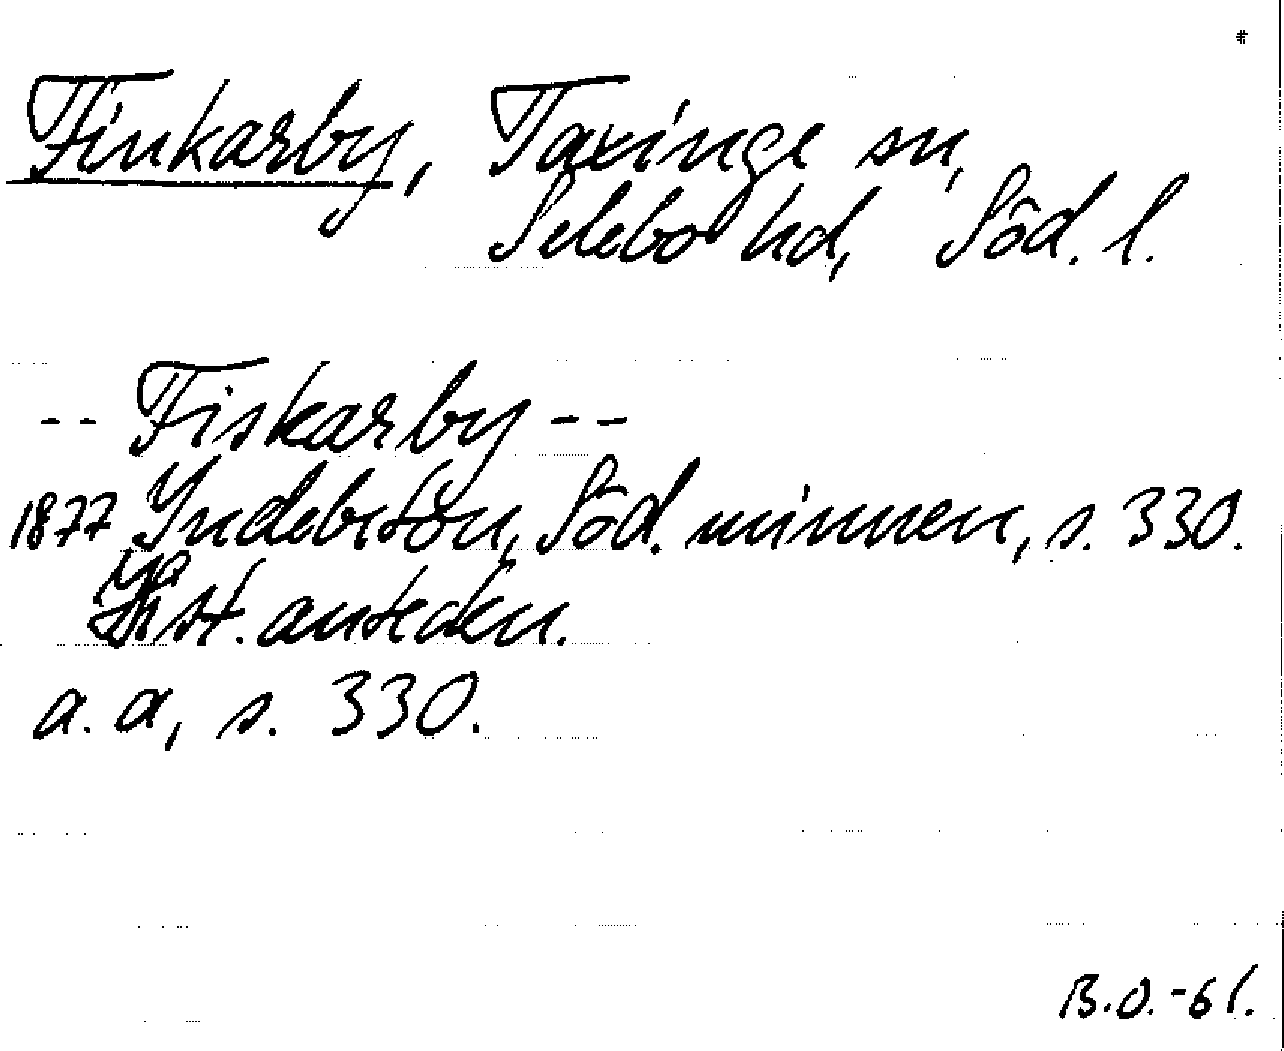 Finkarby, Taxinge sn,
Selebo hd, Söd. l.
-- Fiskarby --
1877 Indebetön, Söd. minnen, s. 330.
Hist. anteckn.
a. a, s. 330.
B.O.-61.